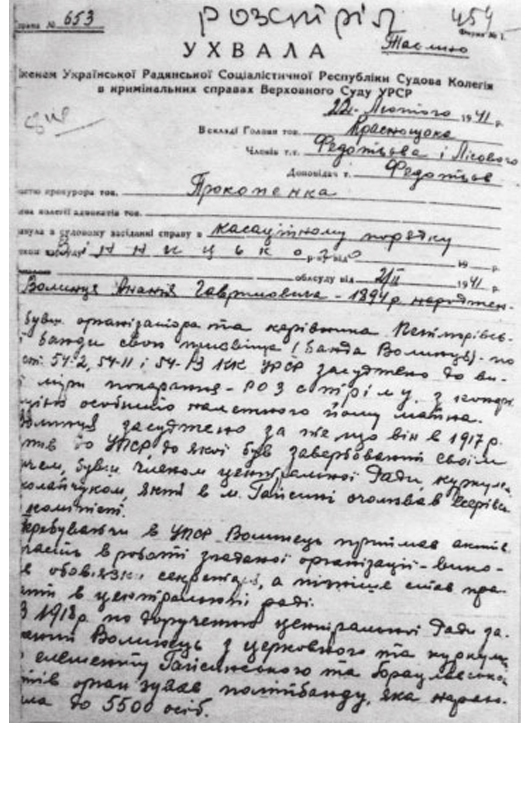 розстріл 454
рава № 653 Форма № 1.
УХВАЛА Таємно
Іменем Української Радянської Соціалістичної Республіки Судова Колегія
в кримінальних справах Верховного Суду УРСР
22 Лютого 1941 р.
В складі Голови тов. Краснощока
Членів т.т. Федотьєва і Лісового
Доповідач т. Федотьєв
астю прокурора тов. Прокопенка
ена колегії адвокатів тов.
нула в судовому засіданні справу в касаційному порядку
Вінницького
облсуду від 2/II 1941 р.
Волинця Ананія Гавриловича - 1894 р народжен-
бувш. організатора та керівника Петлюрівсь-
банди свого прізвища (банда Волинця) - по
ст 54-2, 54-11 і 54-13 КК УРСР засуджено до ви-
міри покарання - РОЗСТРІЛУ, з конфі-
цією особисто належного йому майна.
Волинця засуджено за те що він в 1917 р.
до УПСР, до якої був завербований своїм
, бувш. членом центральної Ради, куркуле
колайчуком, який в м. Гайсині очолював Есерівс
комітет.
еребуваючи в УПСР Волинець приймав актив
участь в роботі згаданої організації - вико-
в обов'язки секретаря, а пізніше став пра-
ати в центральній раді.
З 1918 р по дорученню центральної Ради за-
аний Волинець з церковного та куркуль
елементу Гайсинського та
тів організував політбанду, яка нарахо-
ла до 5500 осіб.